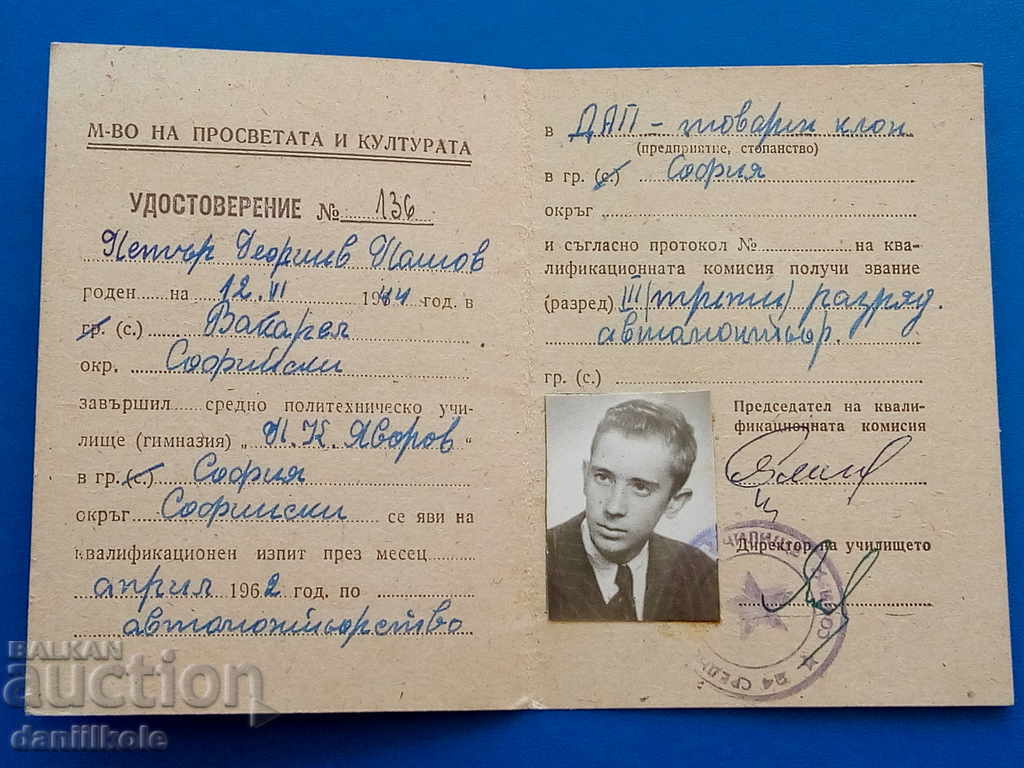 М-ВО НА ПРОСВЕТАТА И КУЛТУРАТА
УДОСТОВЕРЕНИЕ № 136
Петър Георгиев Пашов
роден на 12.VI 1944 год. в
гр. (с.) Вакарел
окр. Софийски
завършил средно политехническо учи-
лище (гимназия) „П. К. Яворов“
в гр. (с.) София
окръг Софийски се яви на
квалификационен изпит през месец
април 1962 год. по
автомонтьорство
в ДАП – товарен клон
(предприятие, стопанство)
в гр. (с.) София
окръг
и съгласно протокол № на ква-
лификационната комисия получи звание
(разред) III (трети) разряд.
автомонтьор.
гр. (с.)
Председател на квали-
фикационната комисия
Директор на училището
24 СРЕД
УЧИЛИЩЕ
СОФИЯ
BALKAN
auction
daniilkole